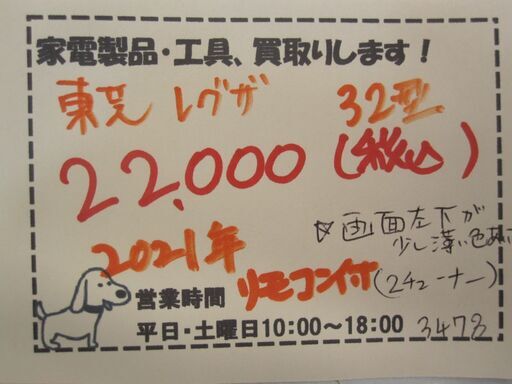 家電製品・工具、買取りします!
東芝 レグザ 32型
22,000(税込)
☆画面左下が
少し薄い色あり
2021年
リモコン付(2チューナー)
営業時間
平日・土曜日10:00～18:00 3478